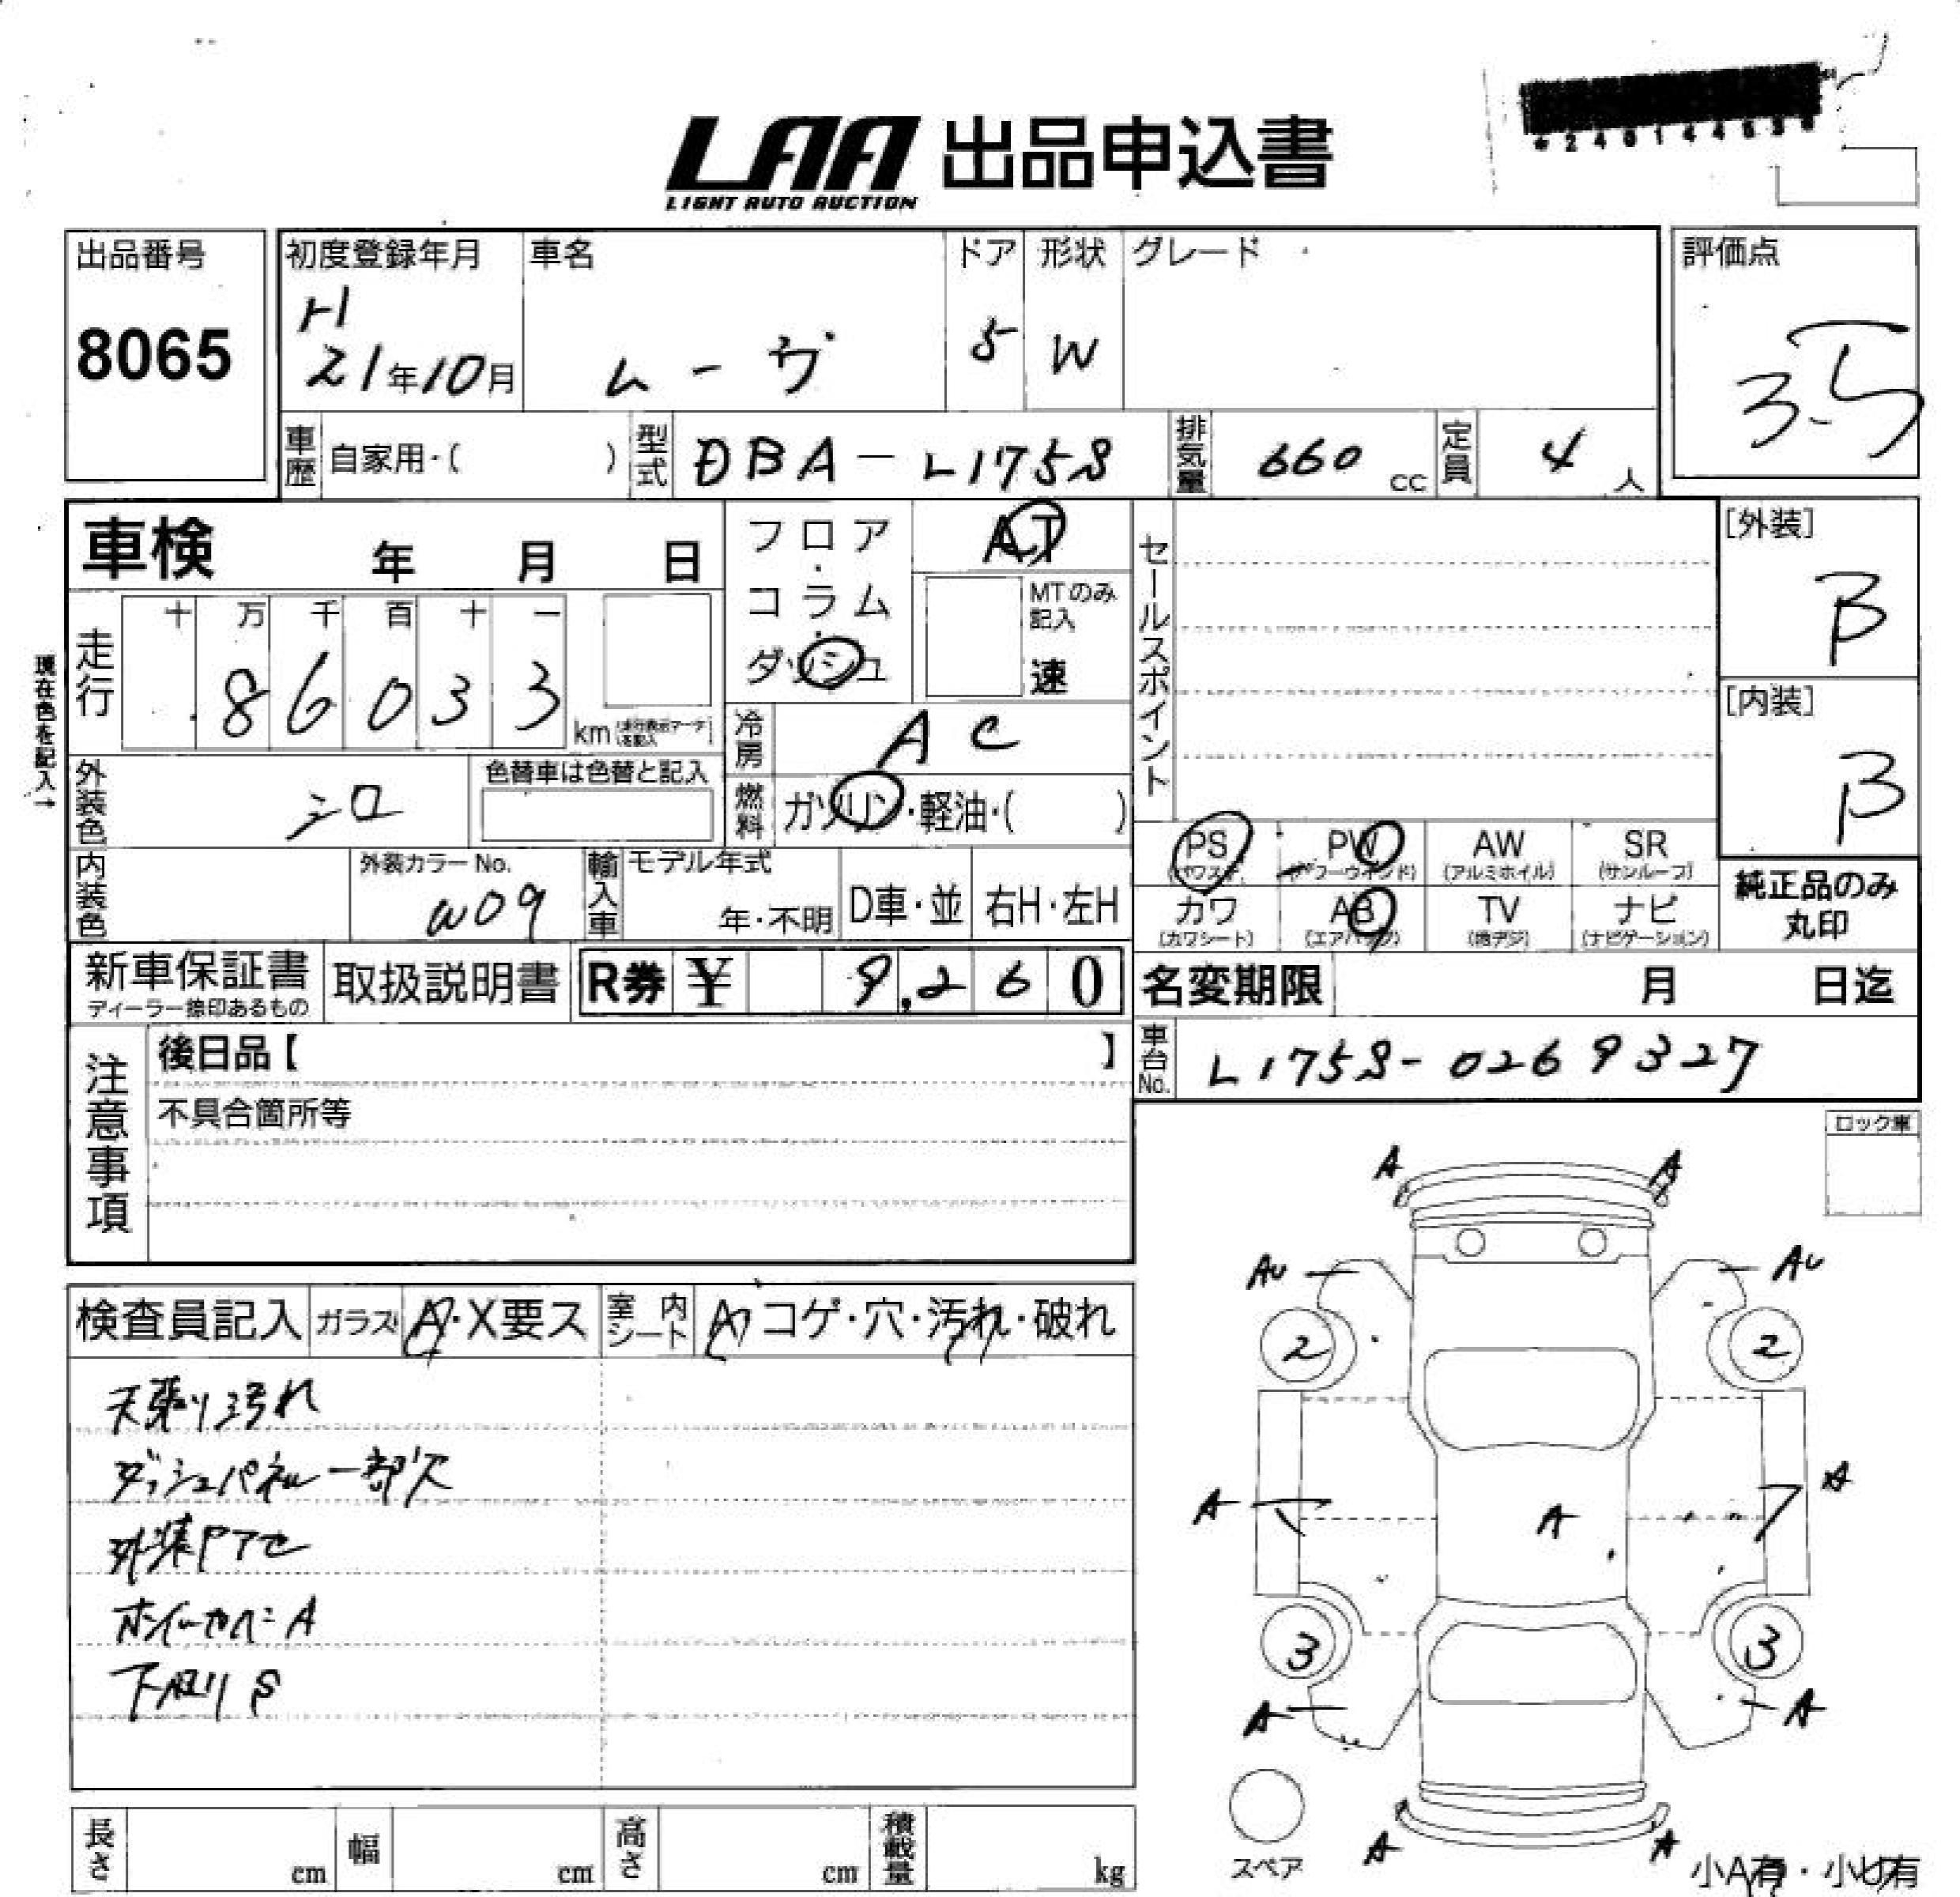 LAA 出品申込書
LIGHT AUTO AUCTION
出品番号
8065
初度登録年月
H
21年10月
車名
ムーヴ
ドア
5
形状
W
グレード
評価点
3.5
車歴 自家用・( )
型式 DBA-L175S
排気量 660 cc
定員 4 人
車検 年 月 日
フロア・コラム・ダッシュ
AT
MTのみ記入
速
走行
十 万 千 百 十 一
8 6 0 3 3
km
現在色を記入→
冷房 AC
外装色 シロ
色替車は色替と記入
燃料 ガソリン・軽油・( )
内装色
外装カラーNo.
W09
輸入車
モデル年式
年・不明
D車・並
右H・左H
セールスポイント
[外装]
B
[内装]
B
PS (パワステ)
PW (パワーウインド)
AW (アルミホイル)
SR (サンルーフ)
カワ (カワシート)
AB (エアバッグ)
TV (地デジ)
ナビ (ナビゲーション)
純正品のみ
丸印
新車保証書
ディーラー捺印あるもの
取扱説明書
R券 ¥ 9,260
名変期限 月 日迄
車台No. L175S-0269327
注意事項
後日品【 】
不具合箇所等
ロック車
検査員記入
ガラス A・X要ス
室内シート A コゲ・穴・汚れ・破れ
天張リ汚れ
ダッシュパネル一部欠
外装ヤアセ
ホイールカバーA
下廻リS
A A
AU AU
2 2
A A A
3 3
A A
A A
スペア
小A有・小U有
長さ cm
幅 cm
高さ cm
積載量 kg